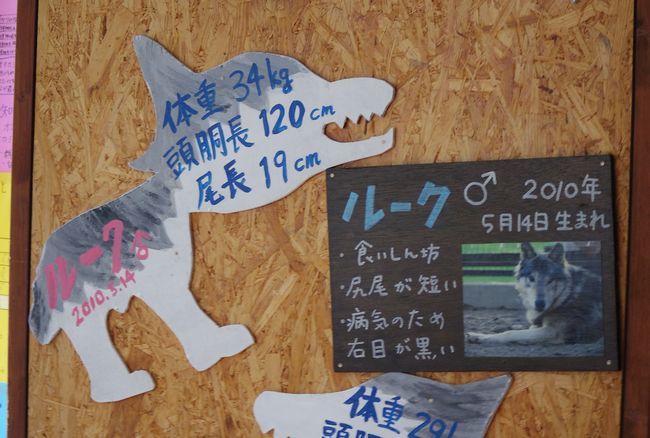 体重 34kg
頭胴長 120cm
尾長 19cm
ルーク♂
2010.5.14
ルーク ♂ 2010年
5月14日 生まれ
・食いしん坊
・尻尾が短い
・病気のため
右目が黒い
体重 29
頭胴